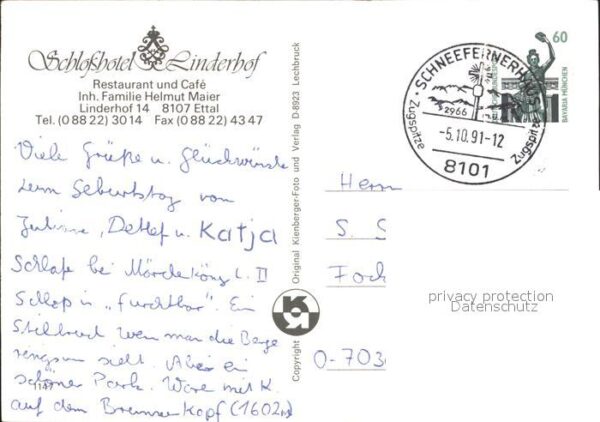 Schloßhotel Linderhof
Restaurant und Café
Inh. Familie Helmut Maier
Linderhof 14 8107 Ettal
Tel. (0 88 22) 30 14 Fax (0 88 22) 43 47
Viele Grüße u. Glückwünsche
zum Geburtstag von
Juliane, Detlef u. Katja
Schlafe bei Märchekönig L. II
Schloß is „furchtbar". Ein
Stilbruch wenn man die Berge
ringsum sieht. Aber ein
schöner Park. Ware mit K.
auf dem Brunnenkopf (1602m)
1147
Original Kienberger-Foto und Verlag D-8923 Lechbruck
Copyright
SCHNEEFERNERHAUS
2966
Zugspitze
Zugspitze
-5.10.91-12
8101
60
BAYARIA MÜNCHEN
Herrn
S. S
Foch
O-703
privacy protection
Datenschutz